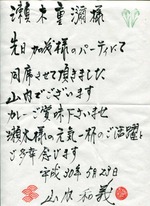 瀬木重彌様
先日加茂様のパーティにて
同席させて頂きました
山内でございます
カレーご賞味下さいませ
瀬木様の元気一杯のご活躍
ご多幸 念じます
平成30年5月23日
山内和義